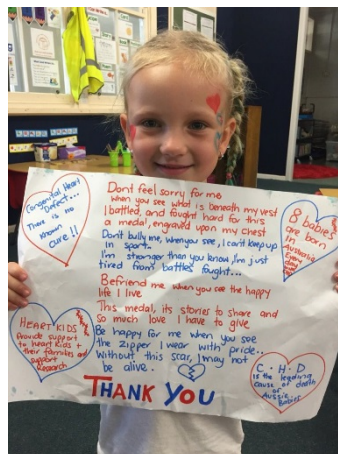 Congenital Heart
Defect...
There is no
known
cure!!
Dont feel sorry for me
when you see what is beneath my vest
I battled, and fought hard for this
a medal, engraved upon my chest
Don't bully me, when you see, I can't keep up
in sport..
I'm stronger than you know, I'm just
tired from battles fought...
Befriend me when you see the happy
life I live
This medal, its stories to share and
so much love I have to give
Be happy for me when you see
the zipper I wear with pride..
Without this scar, I may not
be alive.
THANK YOU
8 babies
are born
in
Australia
Every
day
HEART KIDS
Provide support
to heart kids +
their families and
support
Research
C.H.D
is the leading
cause of death
of
Aussie
Babies